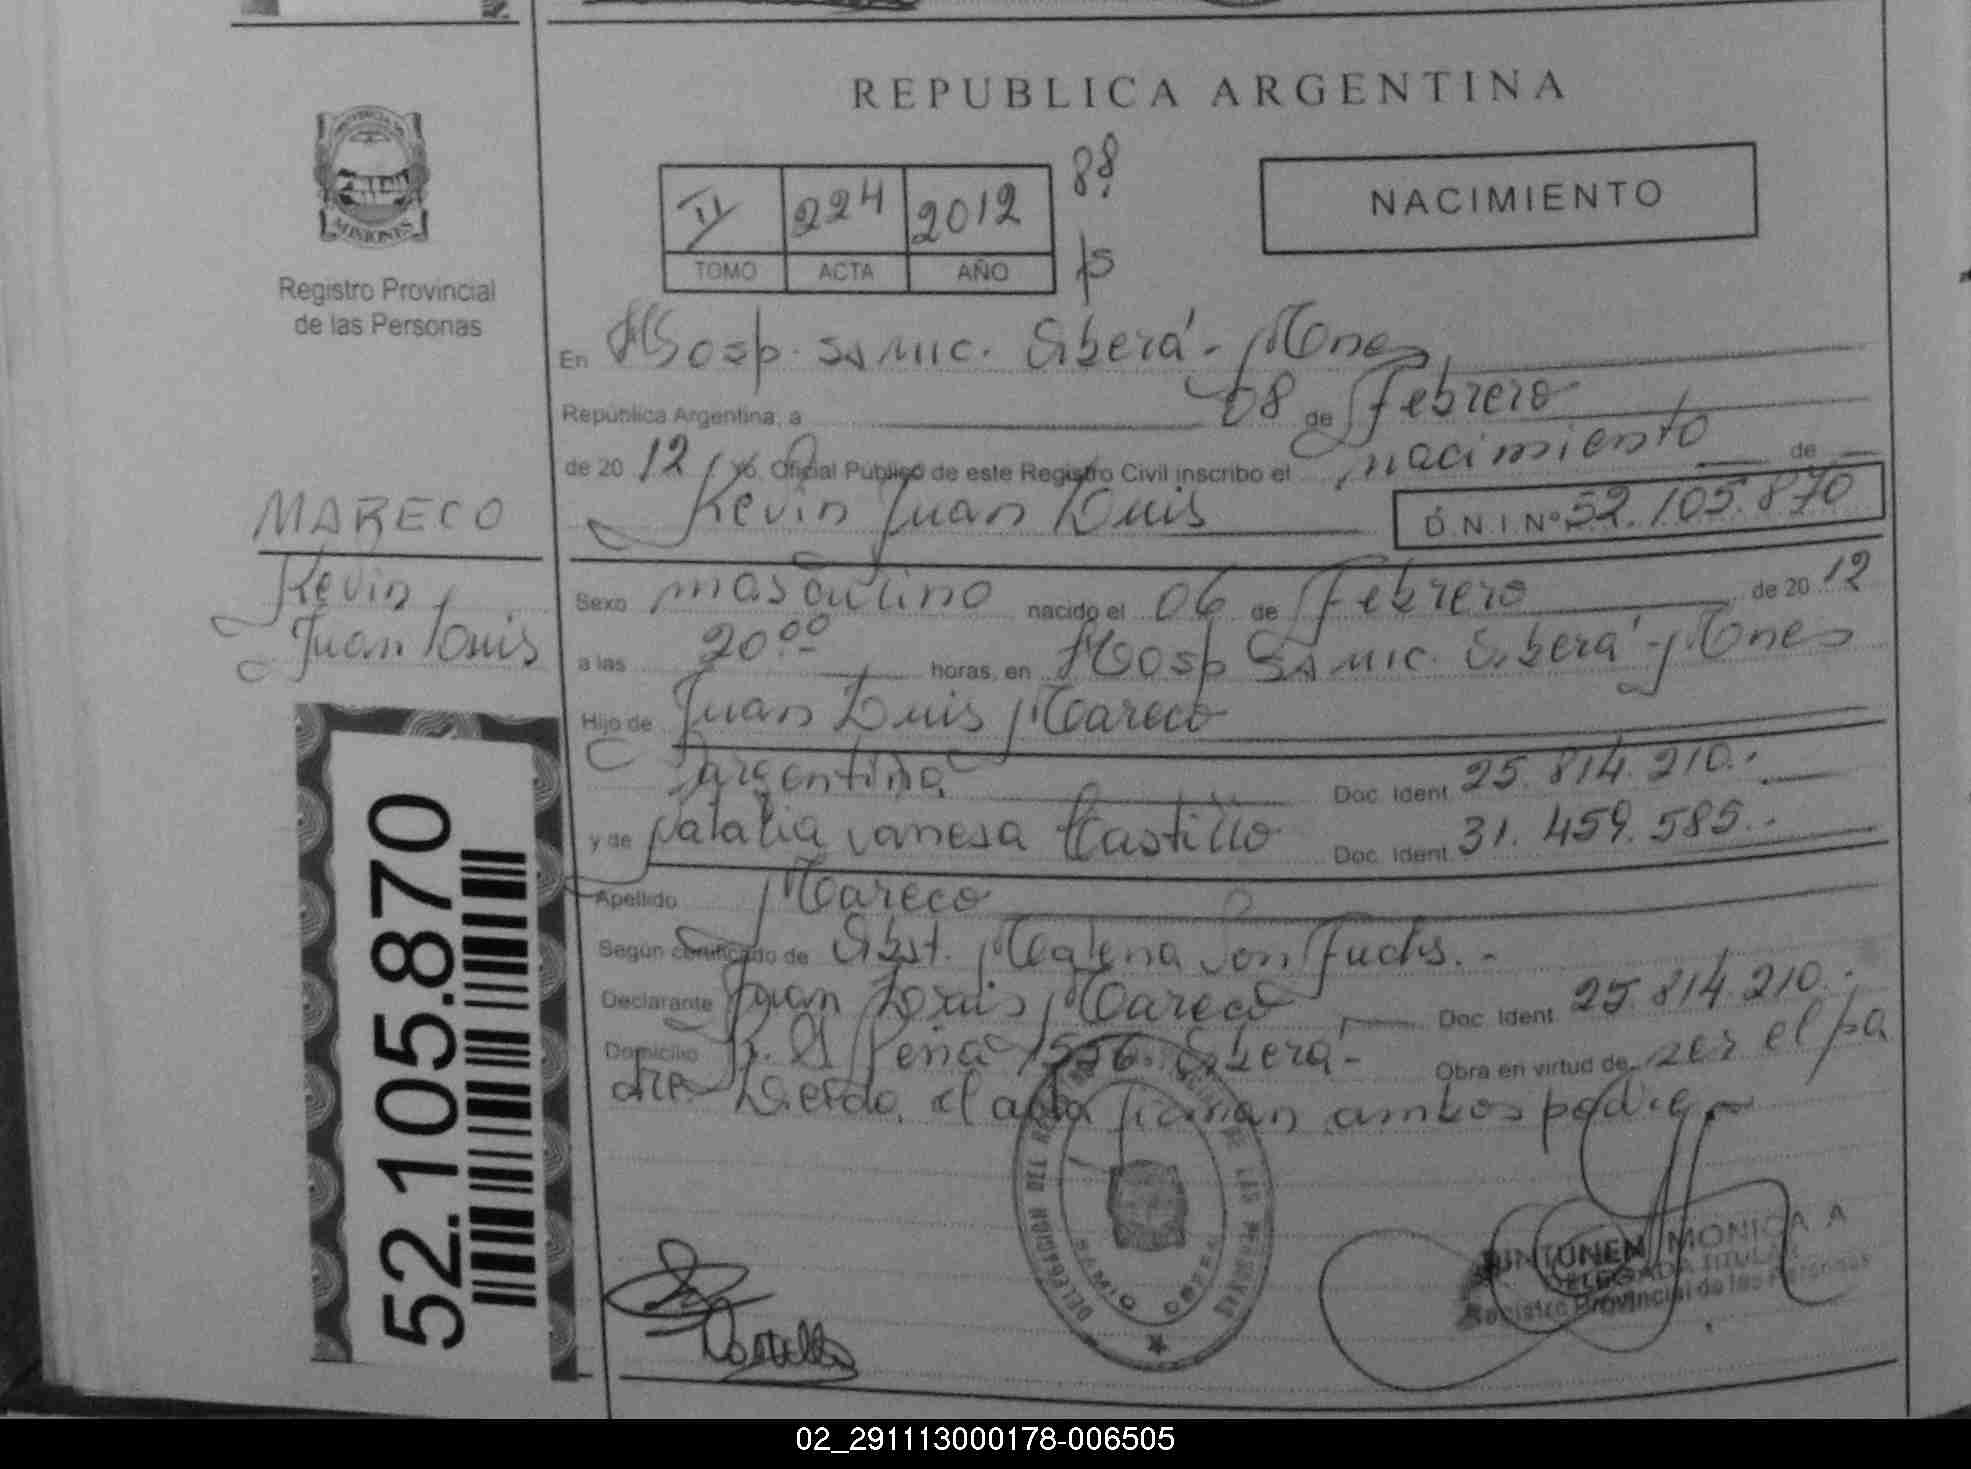 REPUBLICA ARGENTINA
PROVINCIA DE
MISIONES
Registro Provincial
de las Personas
II 224 2012 88
TOMO ACTA AÑO
NACIMIENTO
En Hosp. SAMIC. Oberá - Mnes
República Argentina, a 08 de Febrero
de 2012, yo, Oficial Público de este Registro Civil inscribo el nacimiento de
Kevin Juan Luis D.N.I Nº 52.105.870
MARECO
Kevin
Juan Luis
Sexo masculino nacido el 06 de Febrero de 2012
a las 20:00 horas, en Hosp SAMIC. Oberá - Mnes
Hijo de Juan Luis Mareco
Argentina Doc. Ident. 25.814.210.-
y de Natalia Vanesa Castillo Doc. Ident. 31.459.585.-
Apellido Mareco
Según certificado de Obst. Von Fuchs.-
Declarante Juan Luis Mareco Doc. Ident. 25.814.210.-
Domicilio R. S Peña 1556. Oberá - Obra en virtud de ser el pa
dre Leida el acta firman ambos padres
52.105.870
DELEGACION DEL REGISTRO PROVINCIAL DE LAS PERSONAS
BARRIO
MONICA A
DELEGADA TITULAR
Registro Provincial de las Personas
Castillo
02_291113000178-006505